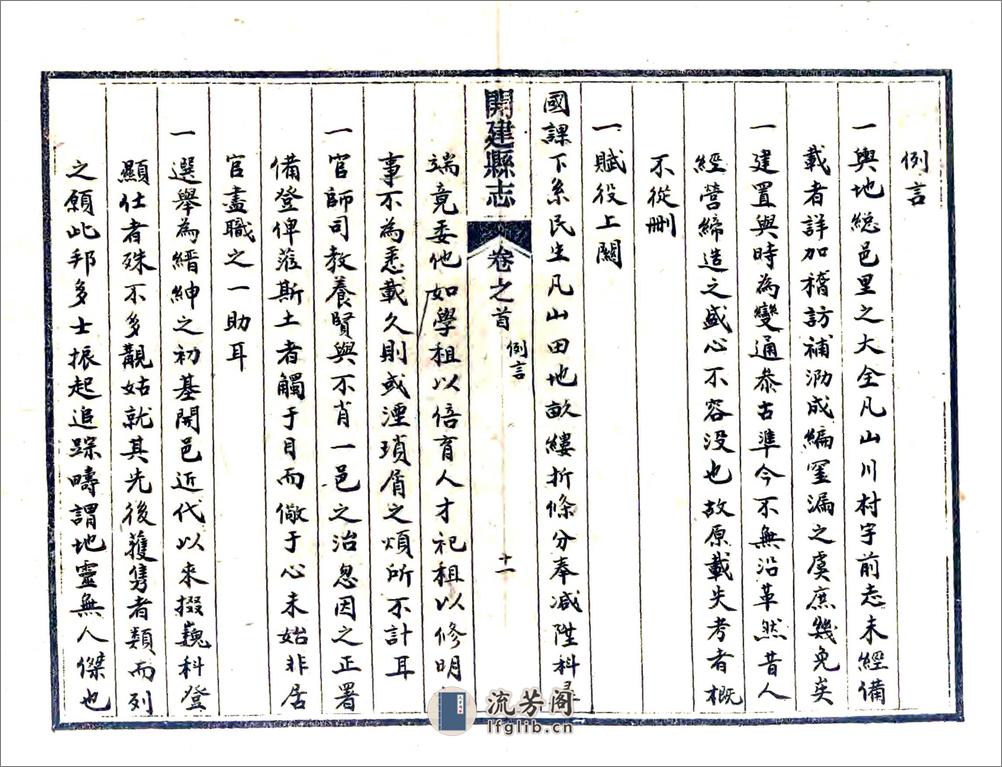 例言
一輿地總邑里之大全凡山川村宇前志未經備
載者詳加稽訪補泐成編罣漏之虞庶幾免矣
一建置與時為變通叅古準今不無沿革然昔人
經營締造之盛心不容没也故原載失考者概
不從刪
一賦役上關
國課下系民生凡山田地畝縷折條分奉减陞科
開建縣志 卷之首 例言 十一
端竟委他如學租以倍育人才祀租以修明
事不為悉載久則或湮瑣屑之煩所不計耳
一官師司教養賢與不肖一邑之治忽因之正署
備登俾蒞斯土者觸于目而儆于心未始非居
官盡職之一助耳
一選舉為縉紳之初基開邑近代以來掇巍科登
顯仕者殊不多覯姑就其先後獲雋者類而列
之願此邦多士振起追踪疇謂地靈無人傑也
流芳阁
lfglib.cn